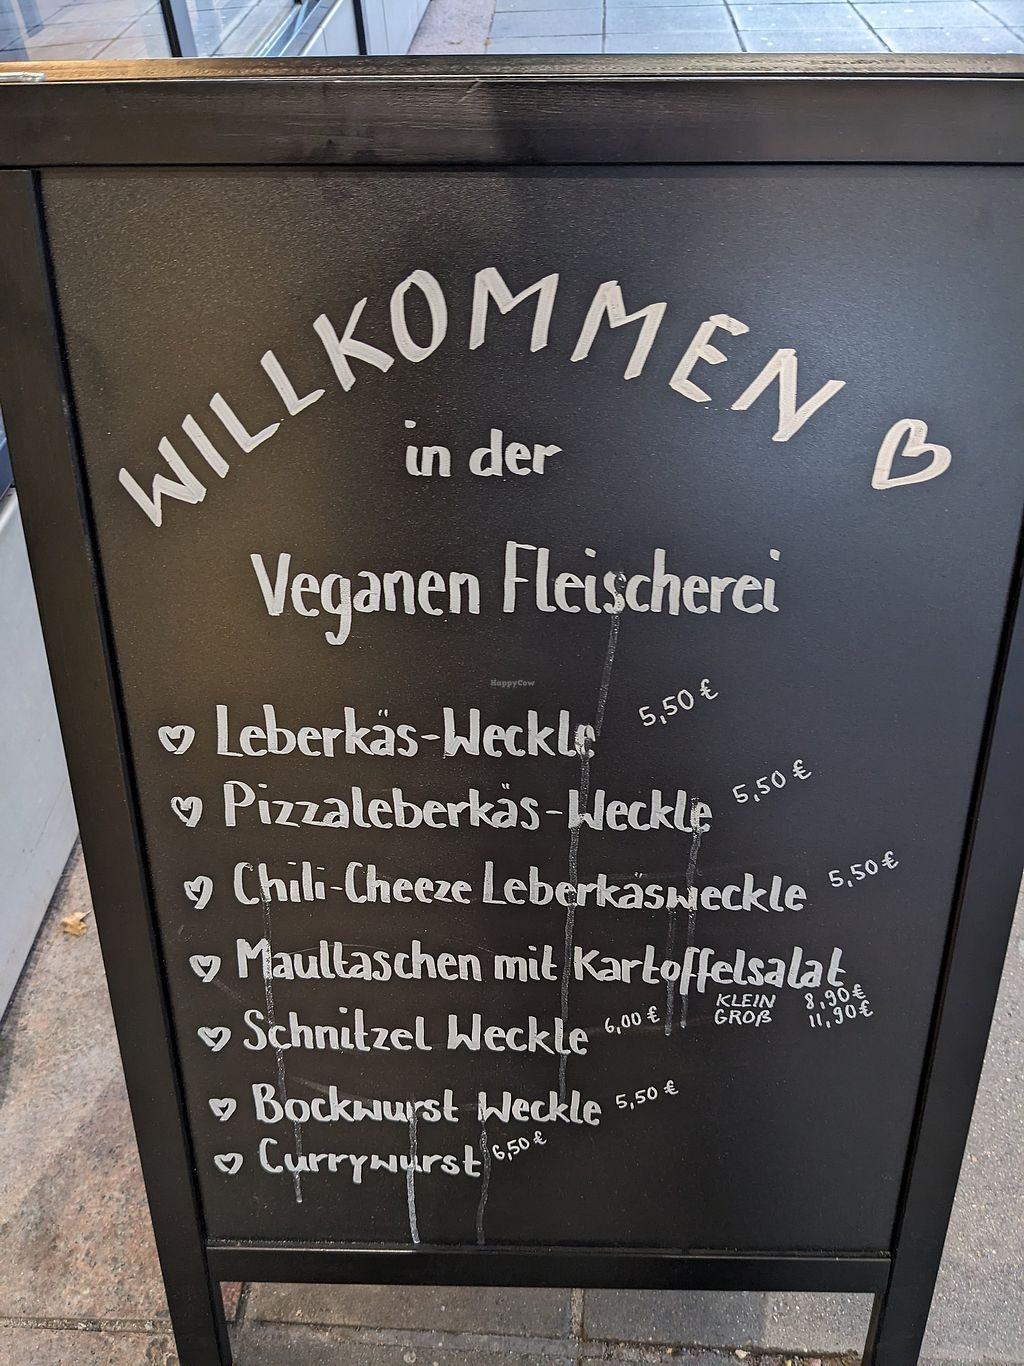 WILLKOMMEN
in der
Veganen Fleischerei
HappyCow
Leberkäs-Weckle 5,50 €
Pizzaleberkäs-Weckle 5,50 €
Chili-Cheeze Leberkäsweckle 5,50 €
Maultaschen mit Kartoffelsalat
KLEIN 8,90 €
GROß 11,90 €
Schnitzel Weckle 6,00 €
Bockwurst Weckle 5,50 €
Currywurst 6,50 €